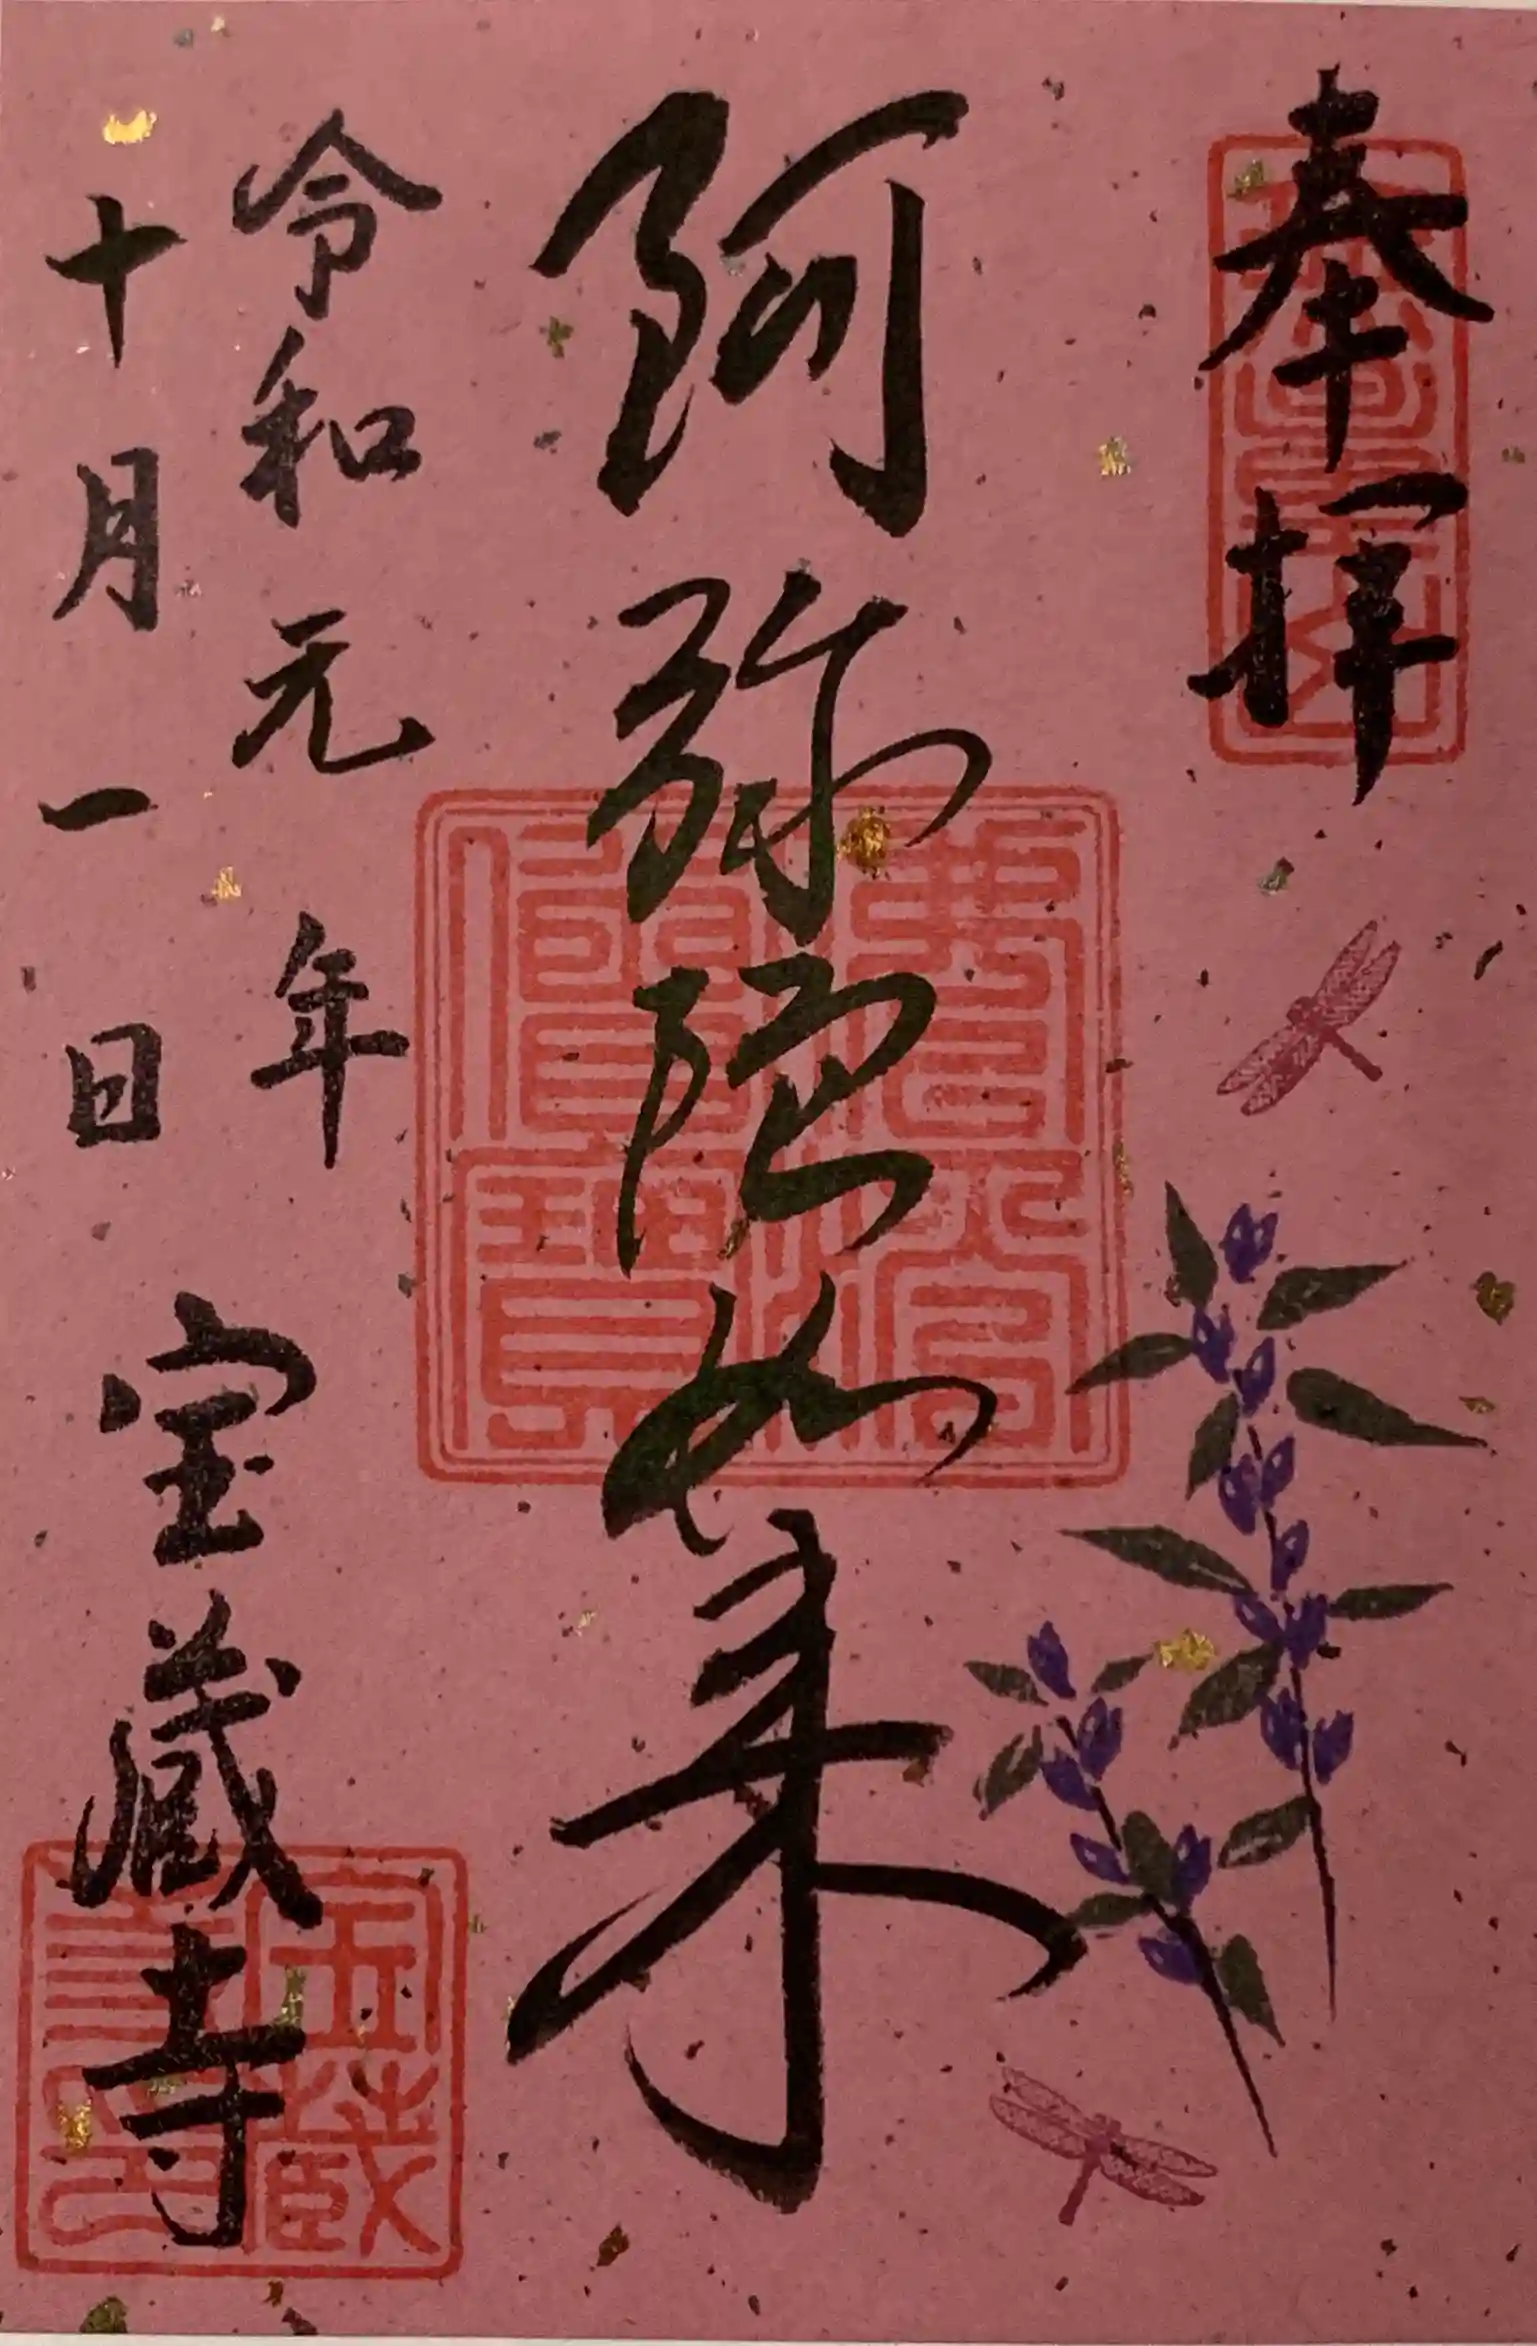 奉拝
阿弥陀如来
令和元年
十月一日
宝蔵寺